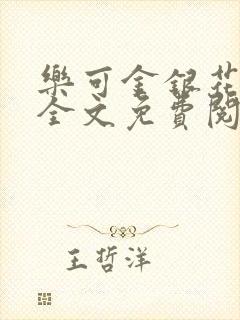 樂可金銀花
全文免費閱
王哲洋